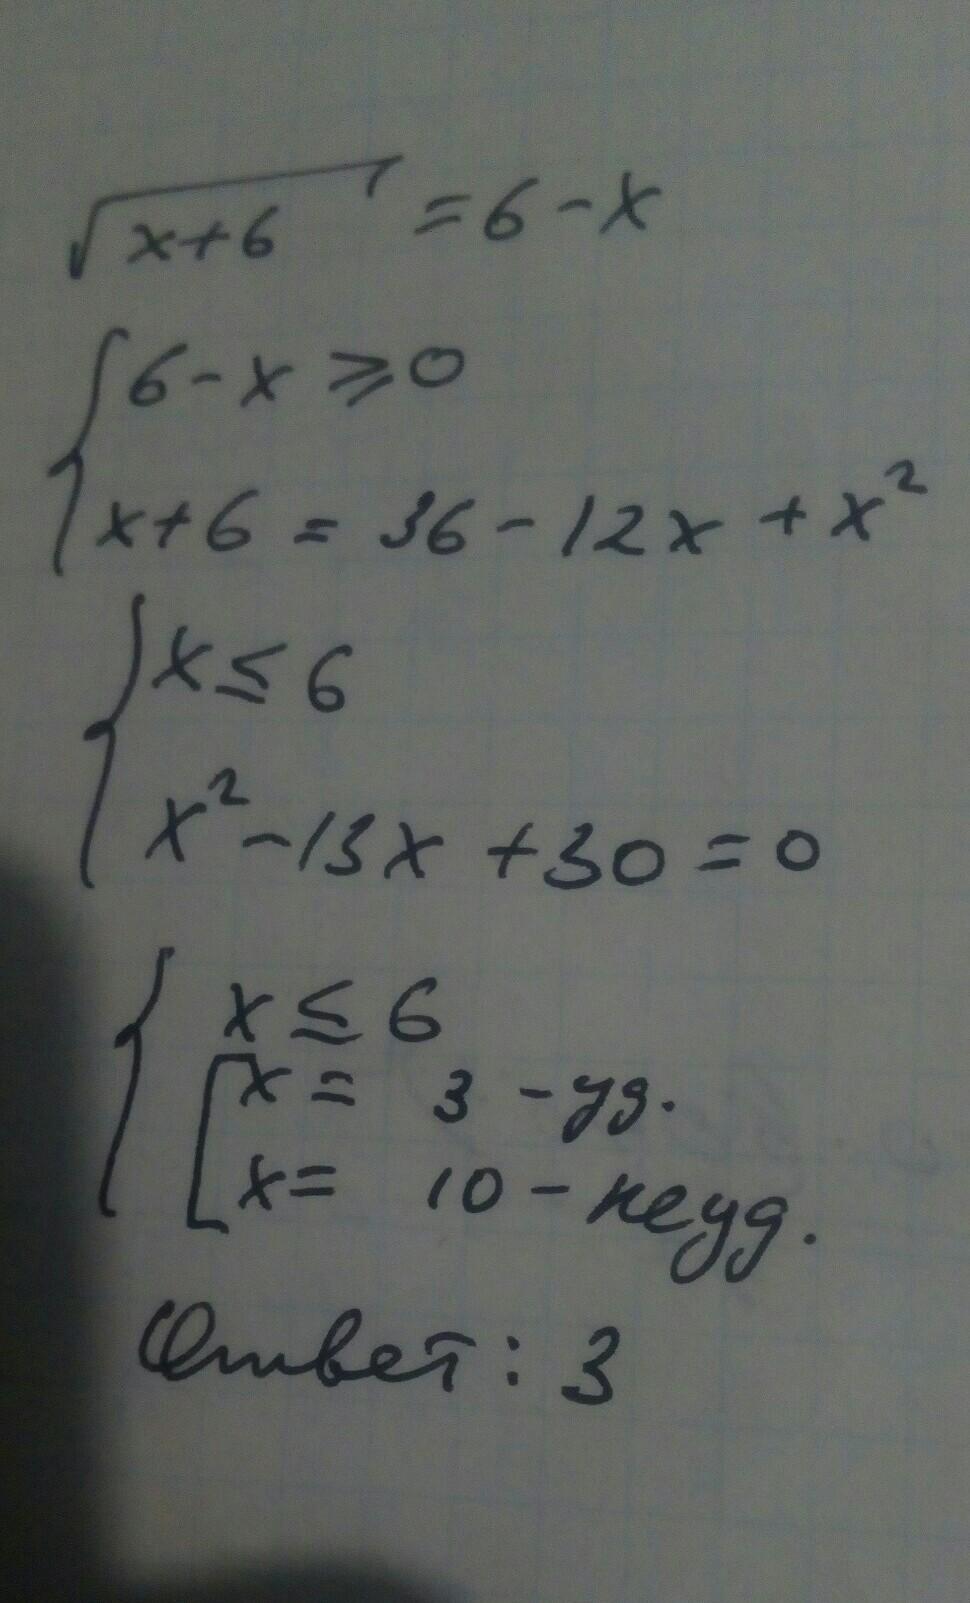 √x+6 = 6 - x
{ 6 - x ⩾ 0
x + 6 = 36 - 12x + x²
{ x ≤ 6
x² - 13x + 30 = 0
{ x ≤ 6
[ x = 3 - уд.
x = 10 - неуд.
Ответ: 3